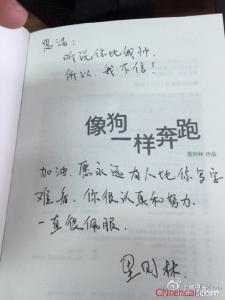 思涵：
听说你比我帅，
所以，我不信！
像狗
一样奔跑
里则林 作品
加油，愿永远有人比你写字
难看，你很认真和努力，
一直很佩服。
里则林
CNrencai.com